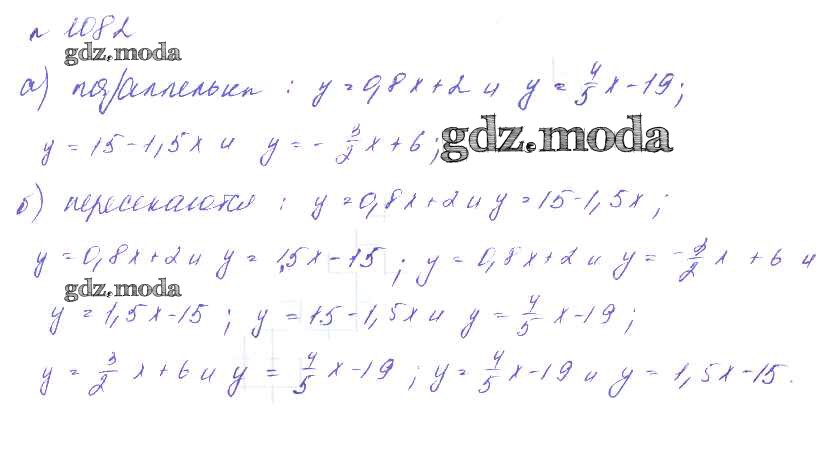 № 1082
gdz.moda
а) параллельны : y = 0,8x + 2 и y = 4/5 x - 19;
y = 15 - 1,5x и y = - 3/2 x + 6;
gdz.moda
б) пересекаются : y = 0,8x + 2 и y = 15 - 1,5x ;
y = 0,8x + 2 и y = 1,5x - 15 ; y = 0,8x + 2 и y = - 3/2 x + 6 и
gdz.moda
y = 1,5x - 15 ; y = 15 - 1,5x и y = 4/5 x - 19 ;
y = 3/2 x + 6 и y = 4/5 x - 19 ; y = 4/5 x - 19 и y = 1,5x - 15.